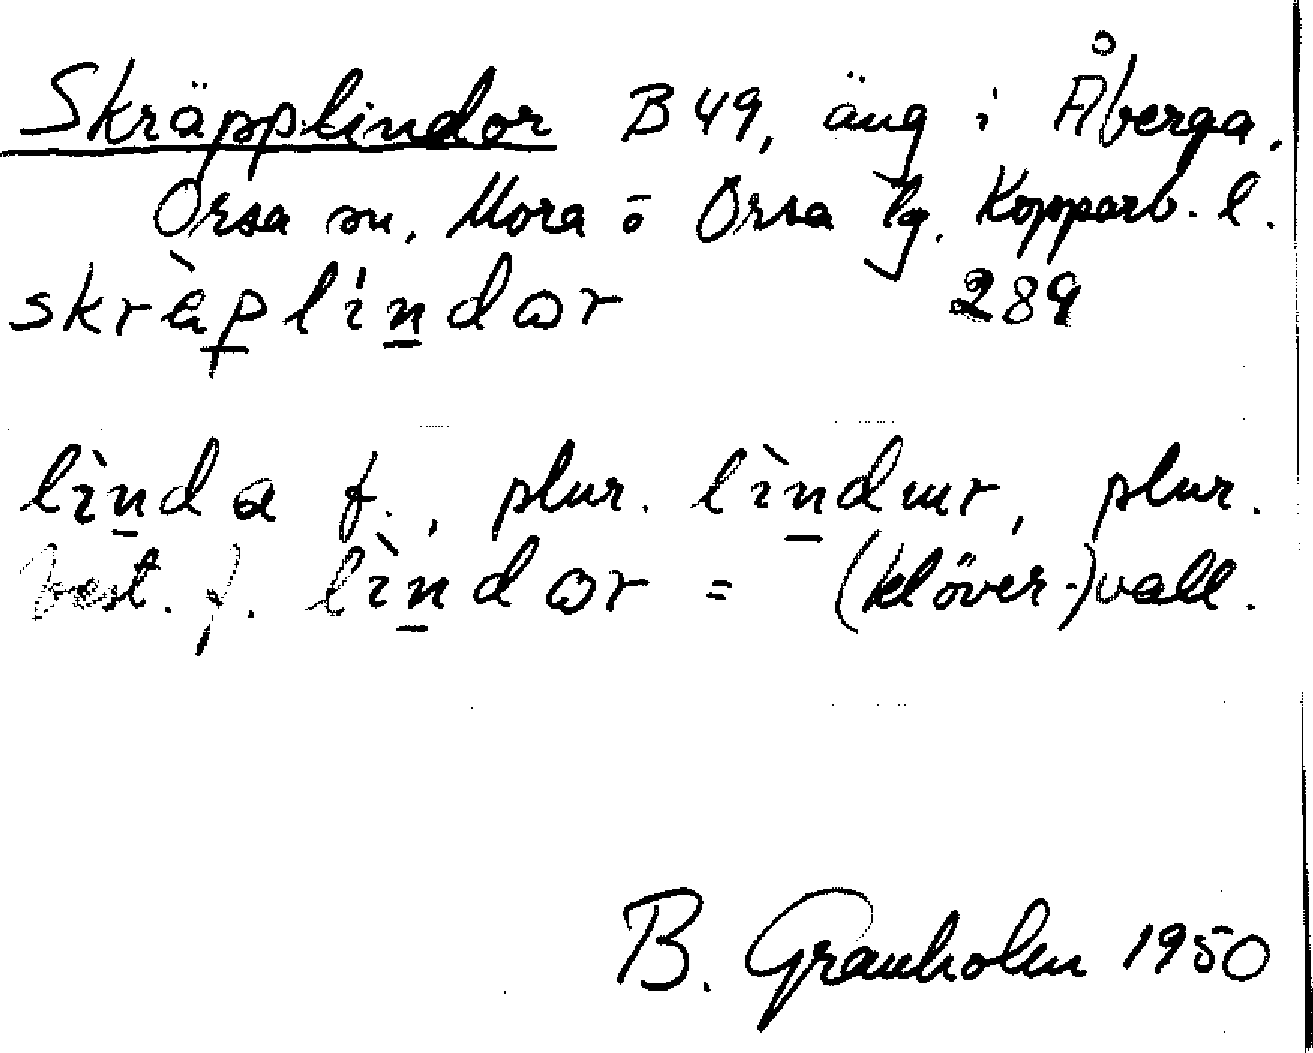 Skräpplindor B 49, äng i Åberga,
Orsa sn, Mora o Orsa tg. Kopparb. l.
skrἂp̲lin̲dωr 289
lìn̲da f., plur. lìn̲dɯr, plur.
best. f. lìn̲dωr = (klöver-)vall.
B. Granholm 1950